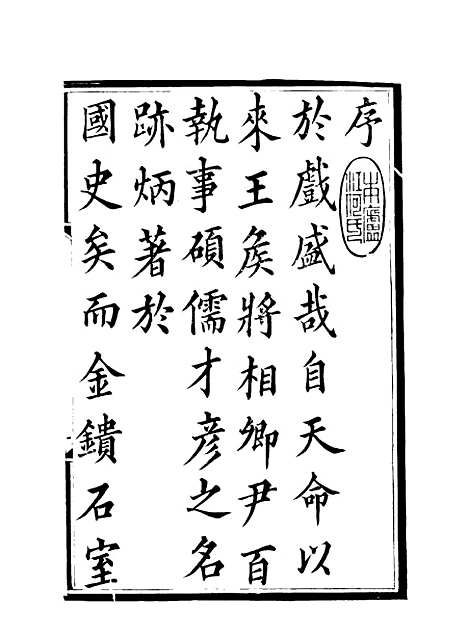 序
於戲盛哉自天命以
來王矦將相卿尹百
執事碩儒才彥之名
跡炳著於
國史矣而金鐀石室